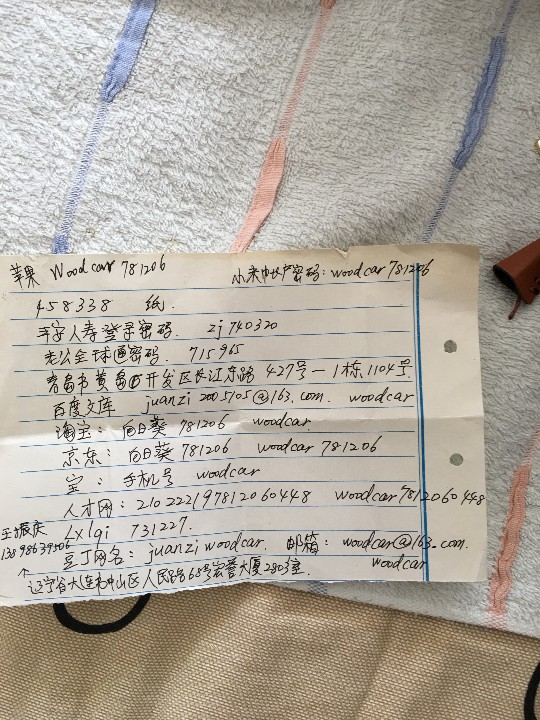 苹果 Woodcar 781206 小米帐户密码：woodcar 781206
458338 纸.
平安人寿登录密码. zj 740320
老公全球通密码. 715965
青岛市黄岛区开发区长江东路 427号-1栋1104号.
百度文库 juanzi 2005105@163.com. woodcar
淘宝：向日葵 781206 woodcar.
京东：向日葵 781206 woodcar 781206
宝：手机号 woodcar
人才网：210222197812060448 woodcar 7812060448
Lxlqi 731227.
豆丁网名：juanzi woodcar. 邮箱：woodcar@163.com.
woodcar
王振庆
↑
辽宁省大连市中山区人民路68号宏誉大厦2803室